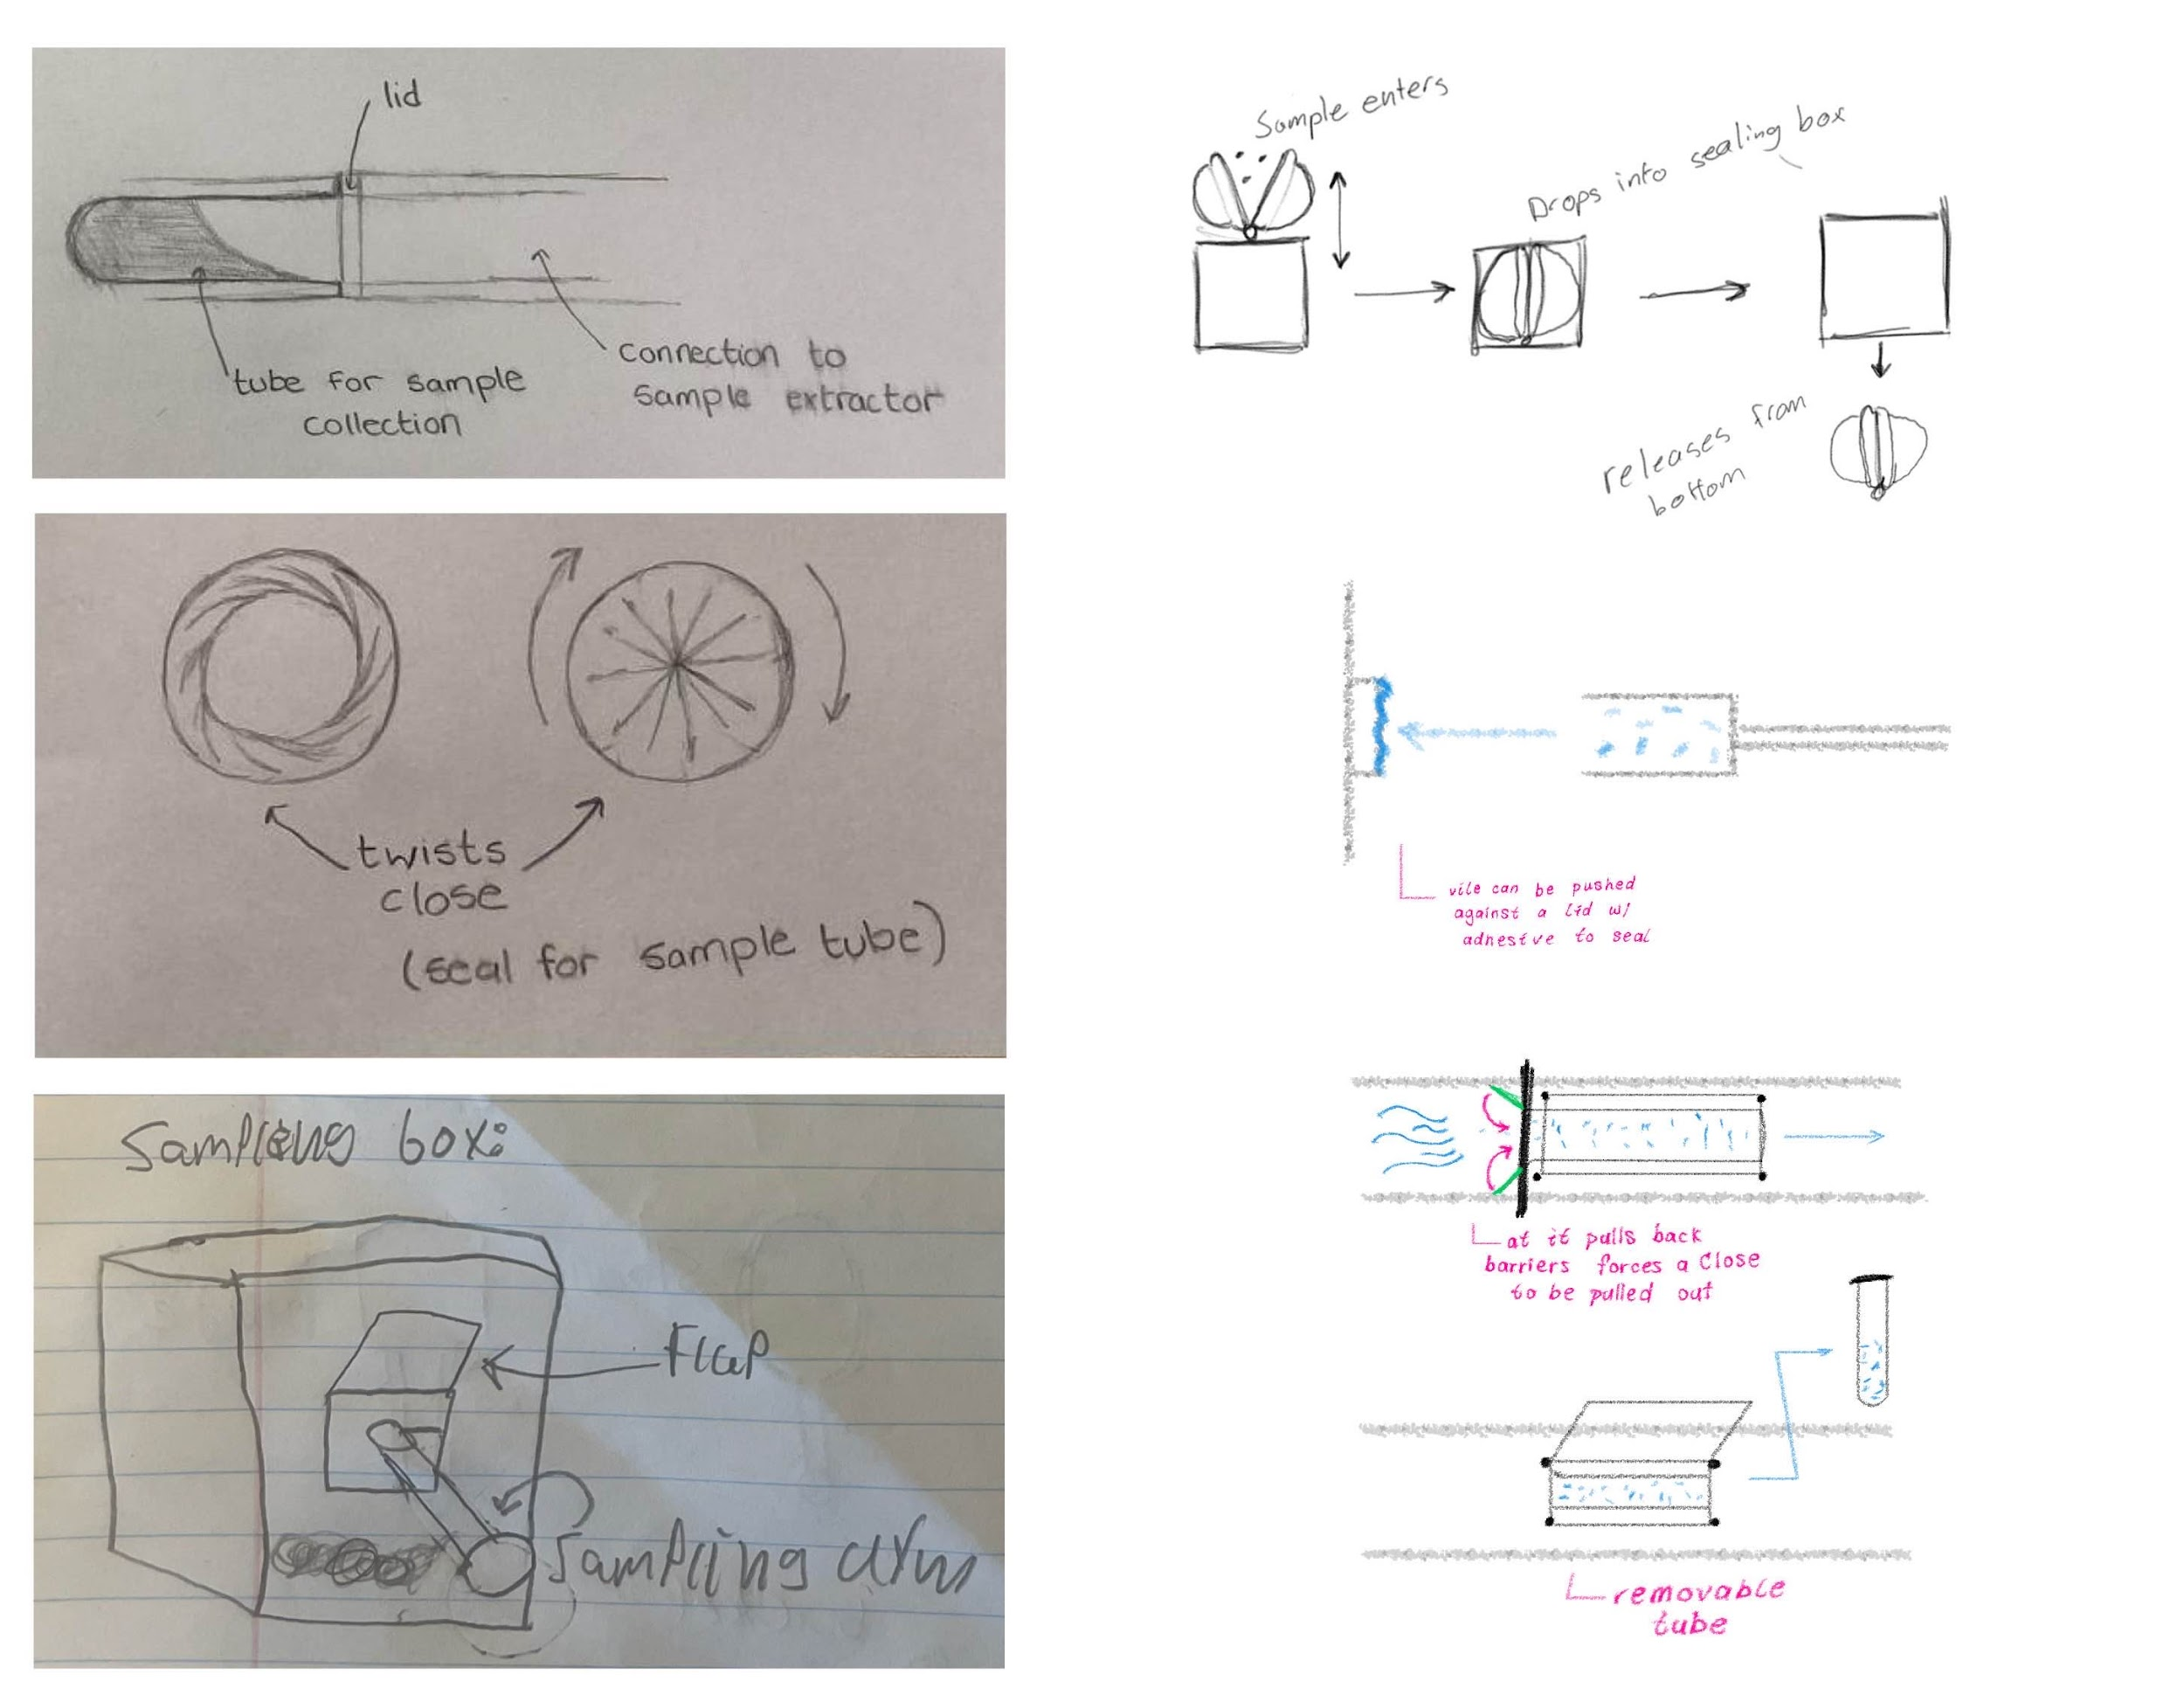 lid
tube for sample
collection
connection to
sample extractor
twists
close
(seal for sample tube)
Sampling box:
Flap
Sampling arm
Sample enters
Drops into sealing box
releases from
bottom
vile can be pushed
against a lid w/
adhesive to seal
at it pulls back
barriers forces a close
to be pulled out
removable
tube